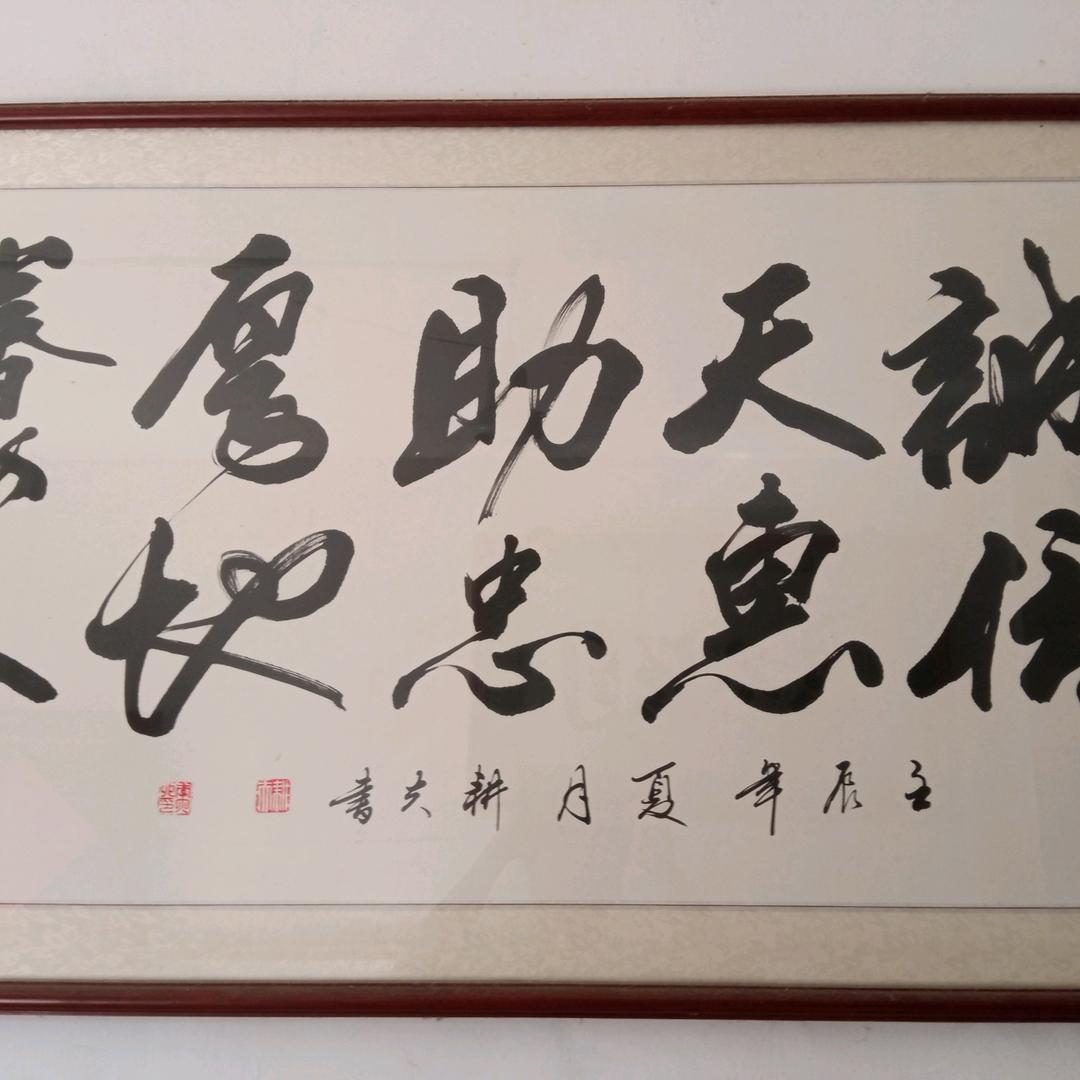 誠信
天惠
助忠
厚地
壬辰年夏月耕夫書